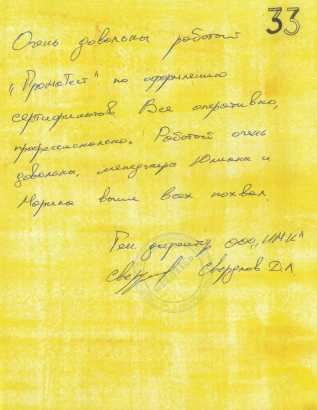 33
Очень довольны работой
„ПромТест" по оформлению
сертификатов. Все оперативно,
профессионально. Работой очень
довольны, менеджера Юлиана и
Марина выше всех похвал.
Ген директор ООО „
Свердлов Д.Л